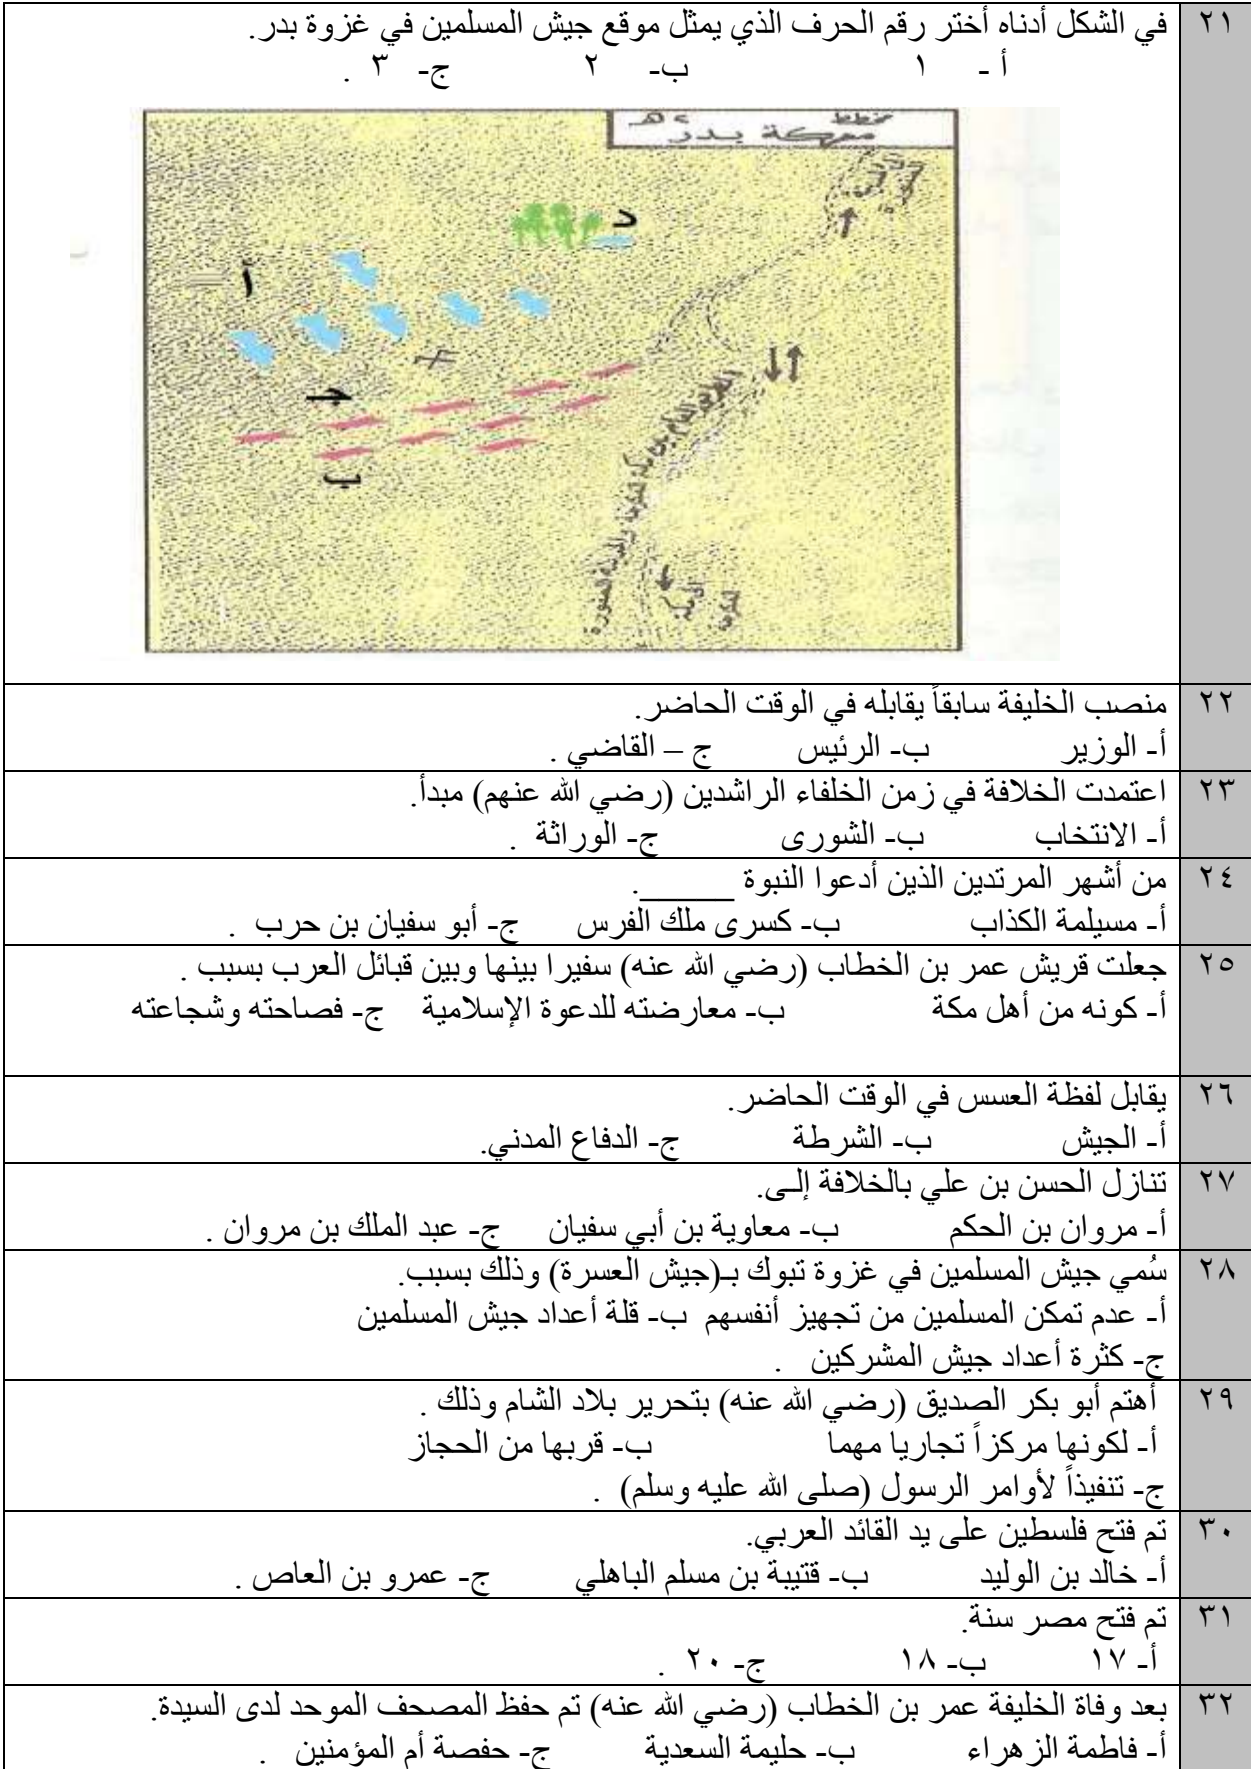 ٢١ في الشكل أدناه أختر رقم الحرف الذي يمثل موقع جيش المسلمين في غزوة بدر.
أ - ١ ب- ٢ ج- ٣ .
مخطط ٢ هـ
معركة بدر
د
أ
جـ
ب
٢٢ منصب الخليفة سابقاً يقابله في الوقت الحاضر.
أ- الوزير ب- الرئيس ج – القاضي .
٢٣ اعتمدت الخلافة في زمن الخلفاء الراشدين (رضي الله عنهم) مبدأ.
أ- الانتخاب ب- الشورى ج- الوراثة .
٢٤ من أشهر المرتدين الذين أدعوا النبوة ______.
أ- مسيلمة الكذاب ب- كسرى ملك الفرس ج- أبو سفيان بن حرب .
٢٥ جعلت قريش عمر بن الخطاب (رضي الله عنه) سفيرا بينها وبين قبائل العرب بسبب .
أ- كونه من أهل مكة ب- معارضته للدعوة الإسلامية ج- فصاحته وشجاعته
٢٦ يقابل لفظة العسس في الوقت الحاضر.
أ- الجيش ب- الشرطة ج- الدفاع المدني.
٢٧ تنازل الحسن بن علي بالخلافة إلـى.
أ- مروان بن الحكم ب- معاوية بن أبي سفيان ج- عبد الملك بن مروان .
٢٨ سُمي جيش المسلمين في غزوة تبوك بـ(جيش العسرة) وذلك بسبب.
أ- عدم تمكن المسلمين من تجهيز أنفسهم ب- قلة أعداد جيش المسلمين
ج- كثرة أعداد جيش المشركين .
٢٩ أهتم أبو بكر الصديق (رضي الله عنه) بتحرير بلاد الشام وذلك .
أ- لكونها مركزاً تجاريا مهما ب- قربها من الحجاز
ج- تنفيذاً لأوامر الرسول (صلى الله عليه وسلم) .
٣٠ تم فتح فلسطين على يد القائد العربي.
أ- خالد بن الوليد ب- قتيبة بن مسلم الباهلي ج- عمرو بن العاص .
٣١ تم فتح مصر سنة.
أ- ١٧ ب- ١٨ ج- ٢٠ .
٣٢ بعد وفاة الخليفة عمر بن الخطاب (رضي الله عنه) تم حفظ المصحف الموحد لدى السيدة.
أ- فاطمة الزهراء ب- حليمة السعدية ج- حفصة أم المؤمنين .